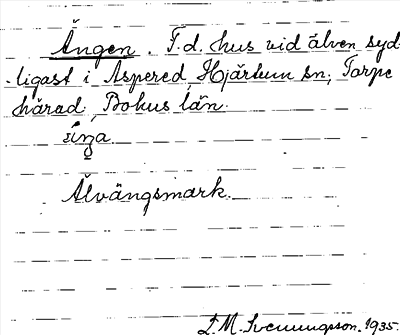 Ängen. F.d. hus vid älven syd-
ligast i Aspered, Hjärtum sn; Torpe
härad, Bohus län.
Älvängsmark.
T. M. Svenungsson. 1935.